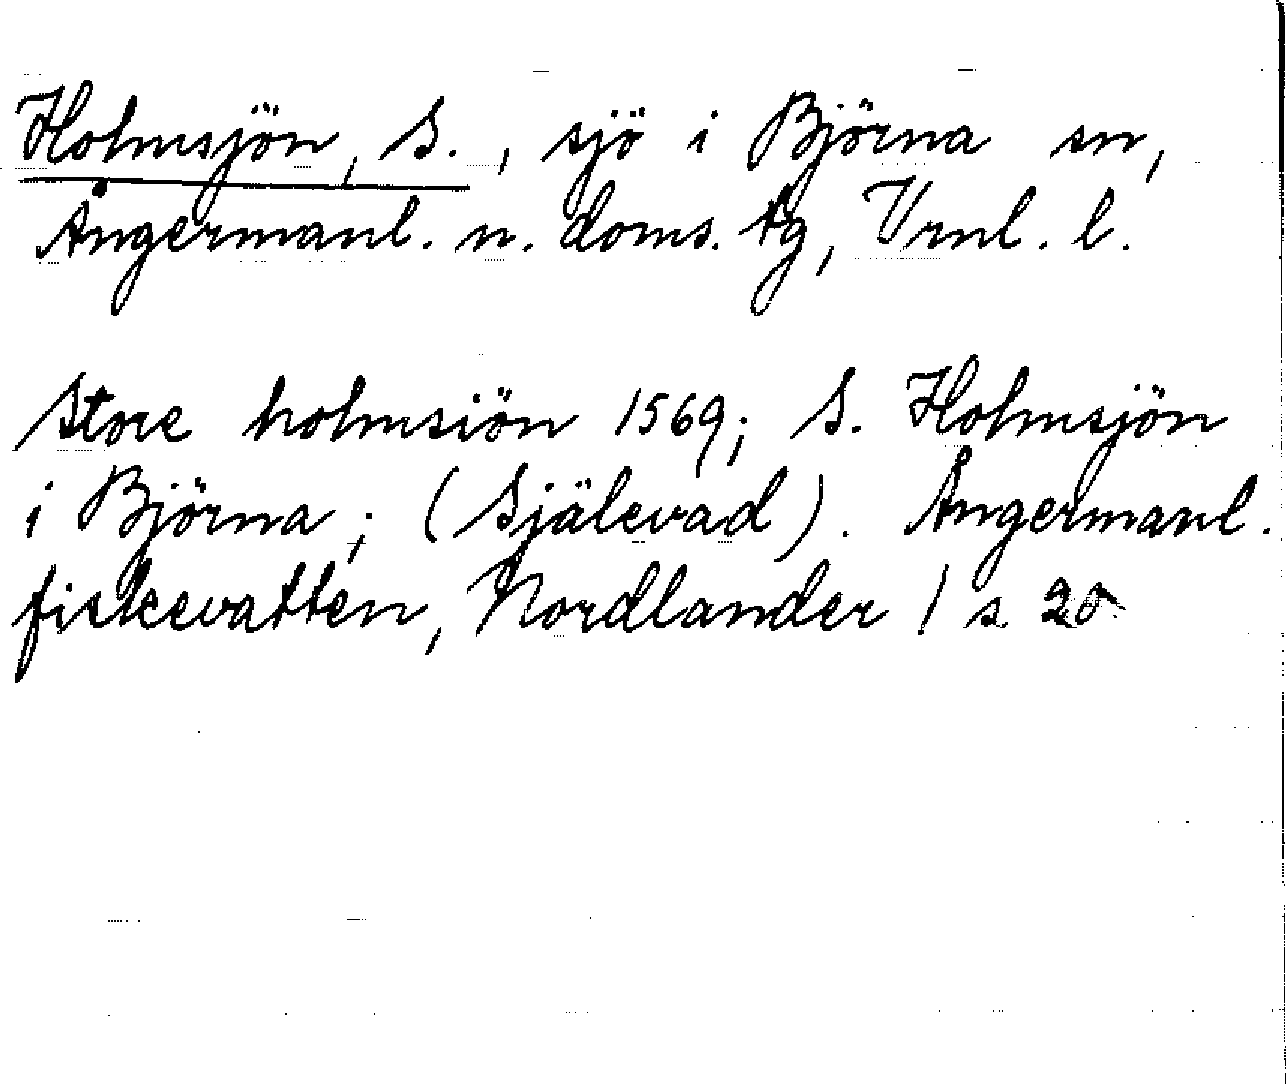 Holmsjön, S., sjö i Björna sn,
Ångermanl. n. doms. tg, Vrnl. l.
Store holmsiön 1569; S. Holmsjön
i Björna; (Själevad). Ångermanl.
fiskevatten, Nordlander 1 s 20